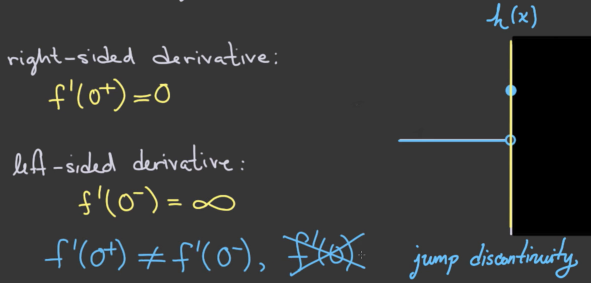 h(x)
right-sided derivative:
f'(0⁺)=0
left-sided derivative:
f'(0⁻)=∞
f'(0⁺)≠f'(0⁻), f'(0)
jump discontinuity